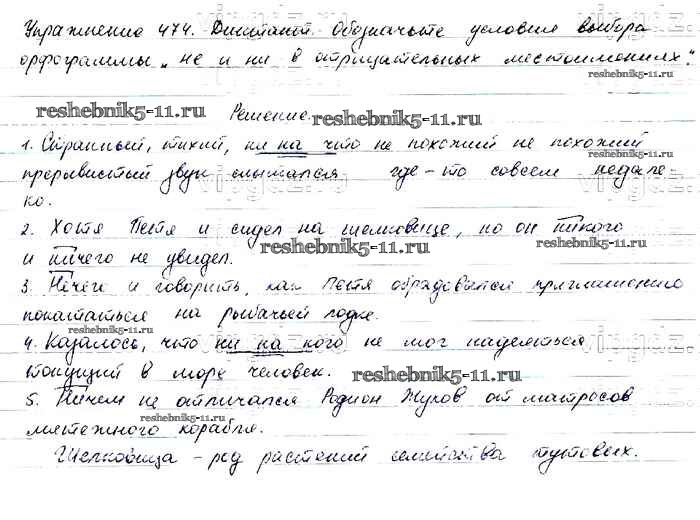 Упражнение 474. Диктант. Обозначьте условия выбора
орфограммы „не и ни в отрицательных местоимениях".
reshebnik5-11.ru
Решение.
reshebnik5-11.ru
1. Странный, тихий, ни на что не похожий не похожий
прерывистый звук слышался где-то совсем недале
ко.
2. Хотя Петя и сидел на шелковице, но он никого
reshebnik5-11.ru
reshebnik5-11.ru
и ничего не увидел.
3. Нечего и говорить, как Петя обрадовался приглашению
покататься на рыбачьей лодке.
reshebnik5-11.ru
4. Казалось, что ни на кого не мог надеяться
тонущий в море человек.
reshebnik5-11.ru
5. Ничем не отличался Родион Жуков от матросов
мятежного корабля.
reshebnik5-11.ru
Шелковица – род растений семейства тутовых.